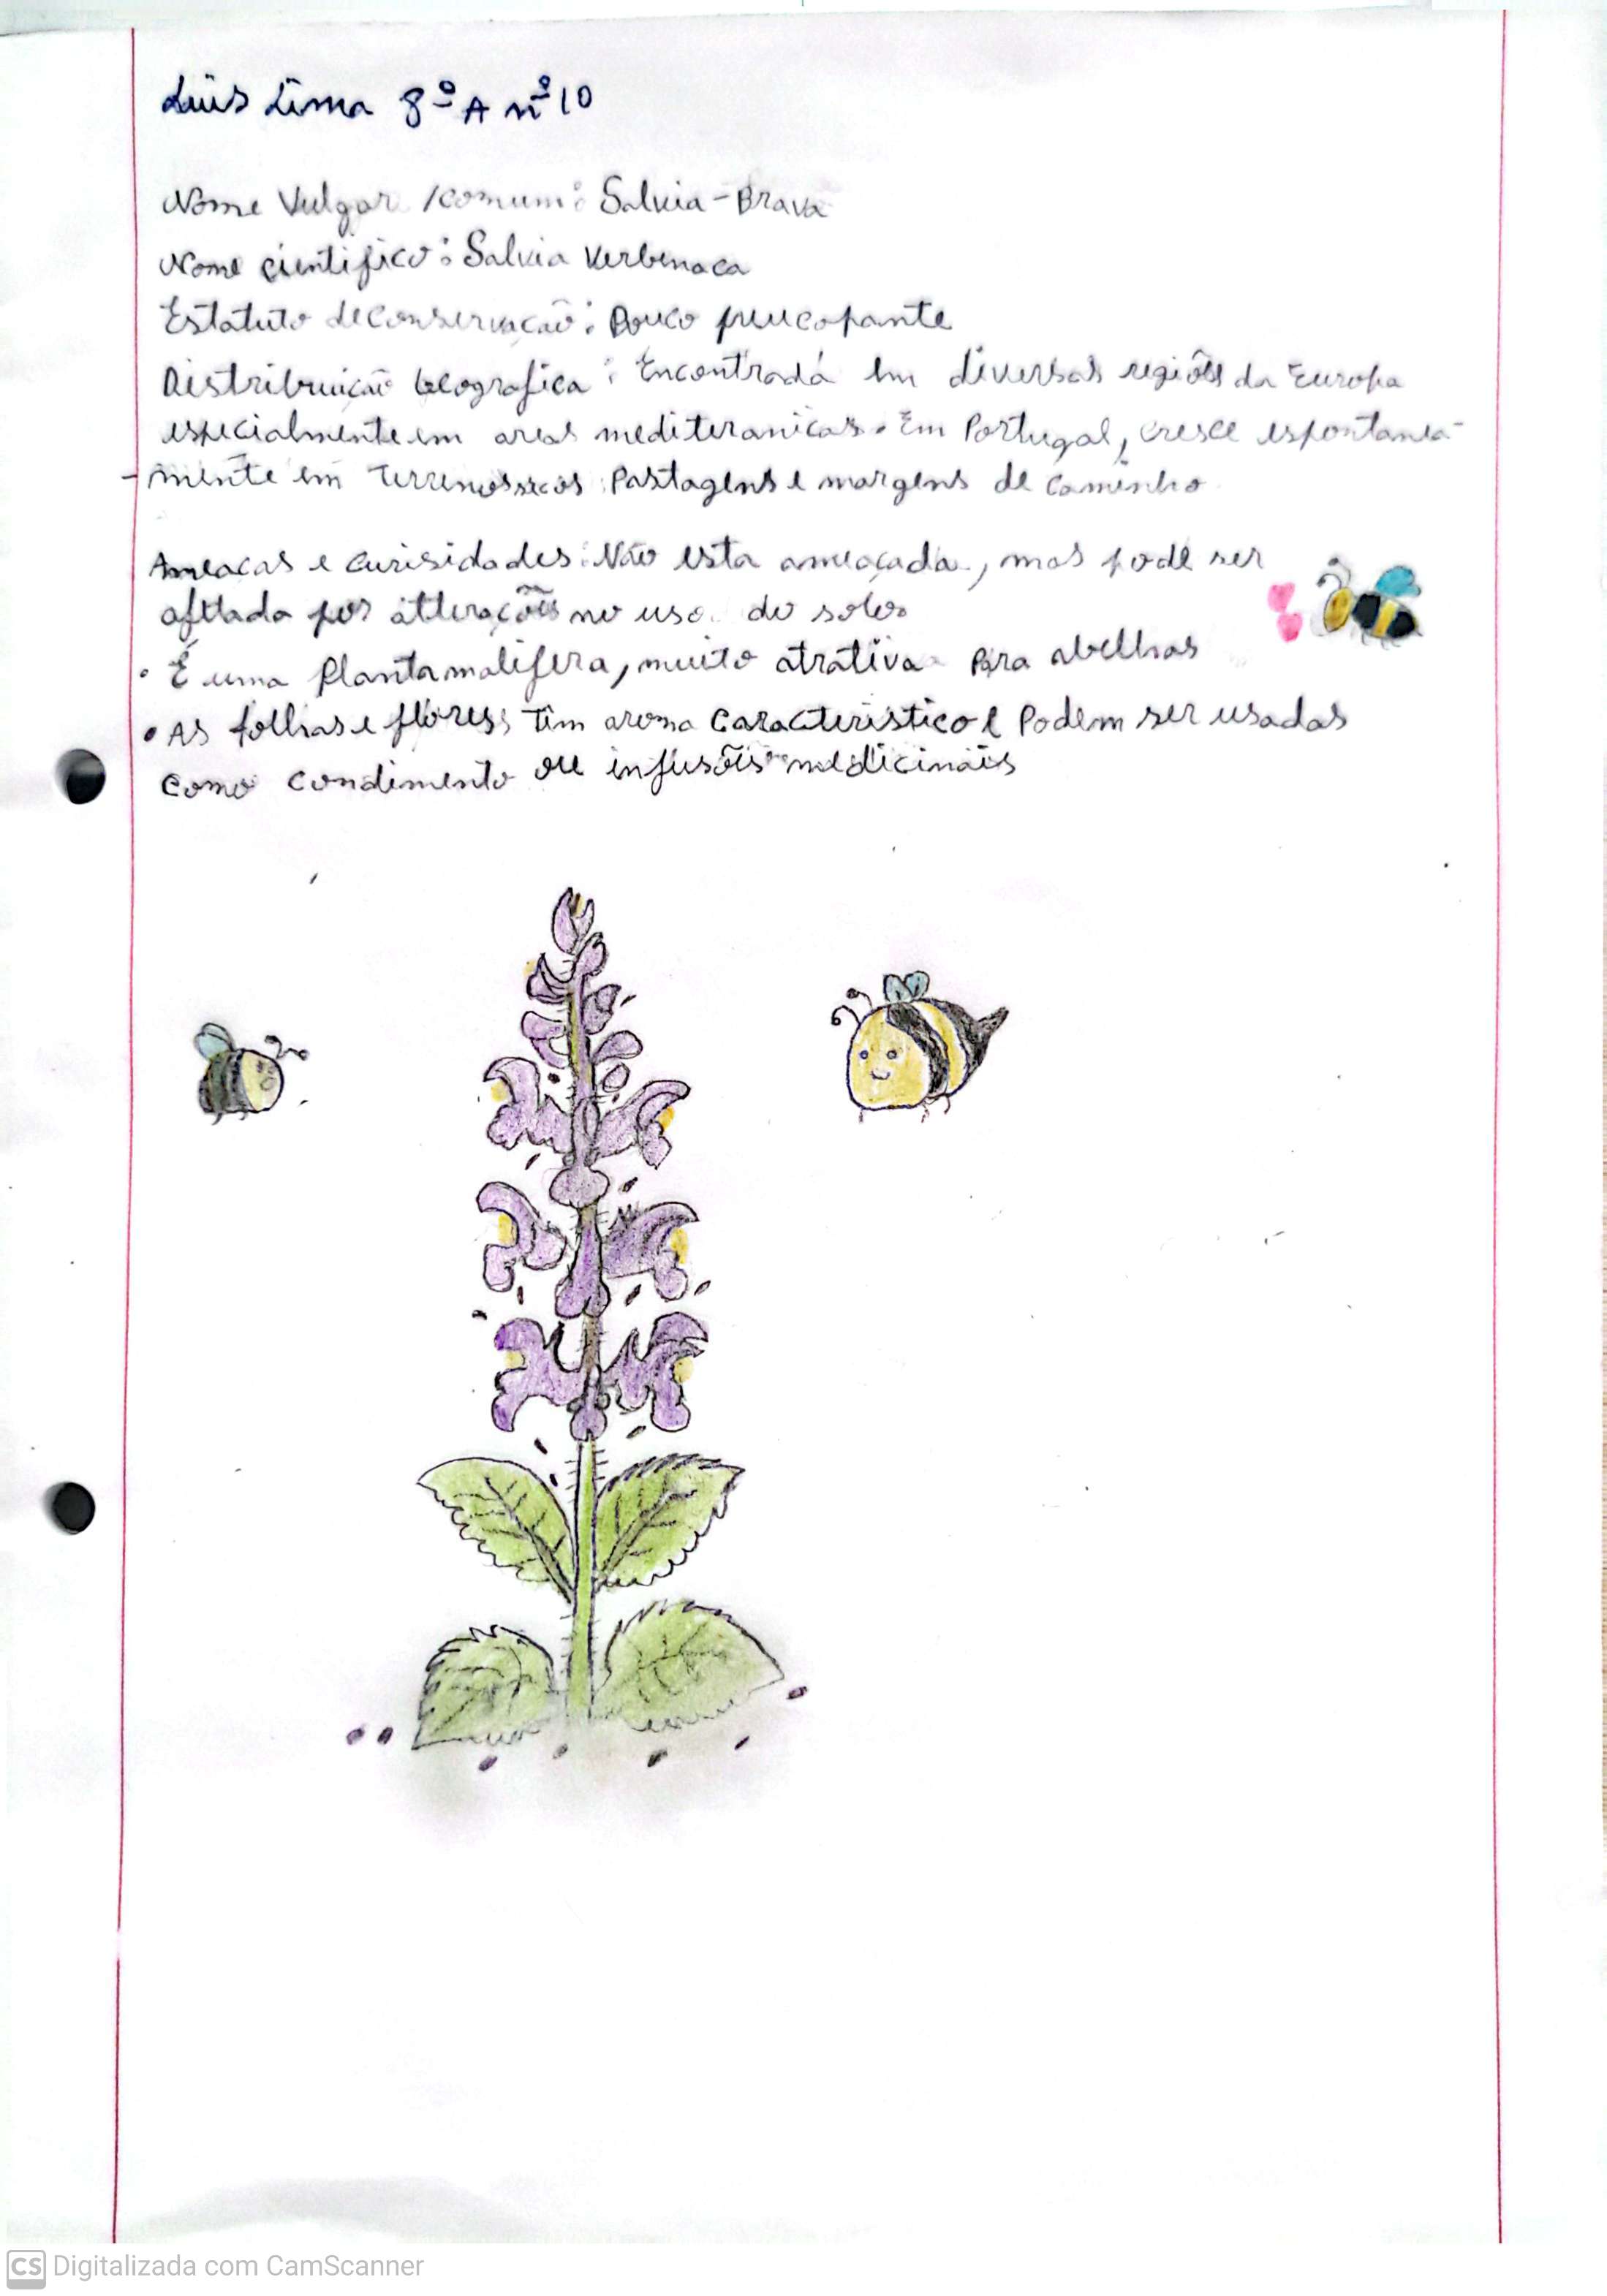 Luís Lima 8º A nº 10
Nome Vulgar /comum: Salvia-Brava
Nome científico: Salvia Verbenaca
Estatuto de conservação: Pouco preucopante
Distribuição Geografica: Encontrada em diversas regiões da Europa
especialmente em areas mediteranicas. Em Portugal, cresce espontanea-
-mente em terrenos secos Pastagens e margens de caminho
Ameacas e curisidades: Não esta ameaçada, mas pode ser
afetada por alterações no uso do solo.
• É uma Planta malifera, muito atrativa Para abelhas
• As folhas e flores têm aroma característico e Podem ser usadas
como condimento ou infusões medicinais
CS Digitalizada com CamScanner